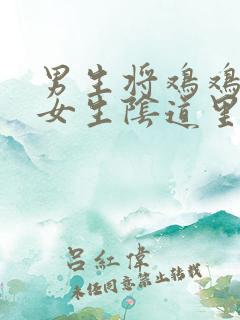 男生将鸡鸡
女生陰道里
吕紅偉
未任同意禁止转载